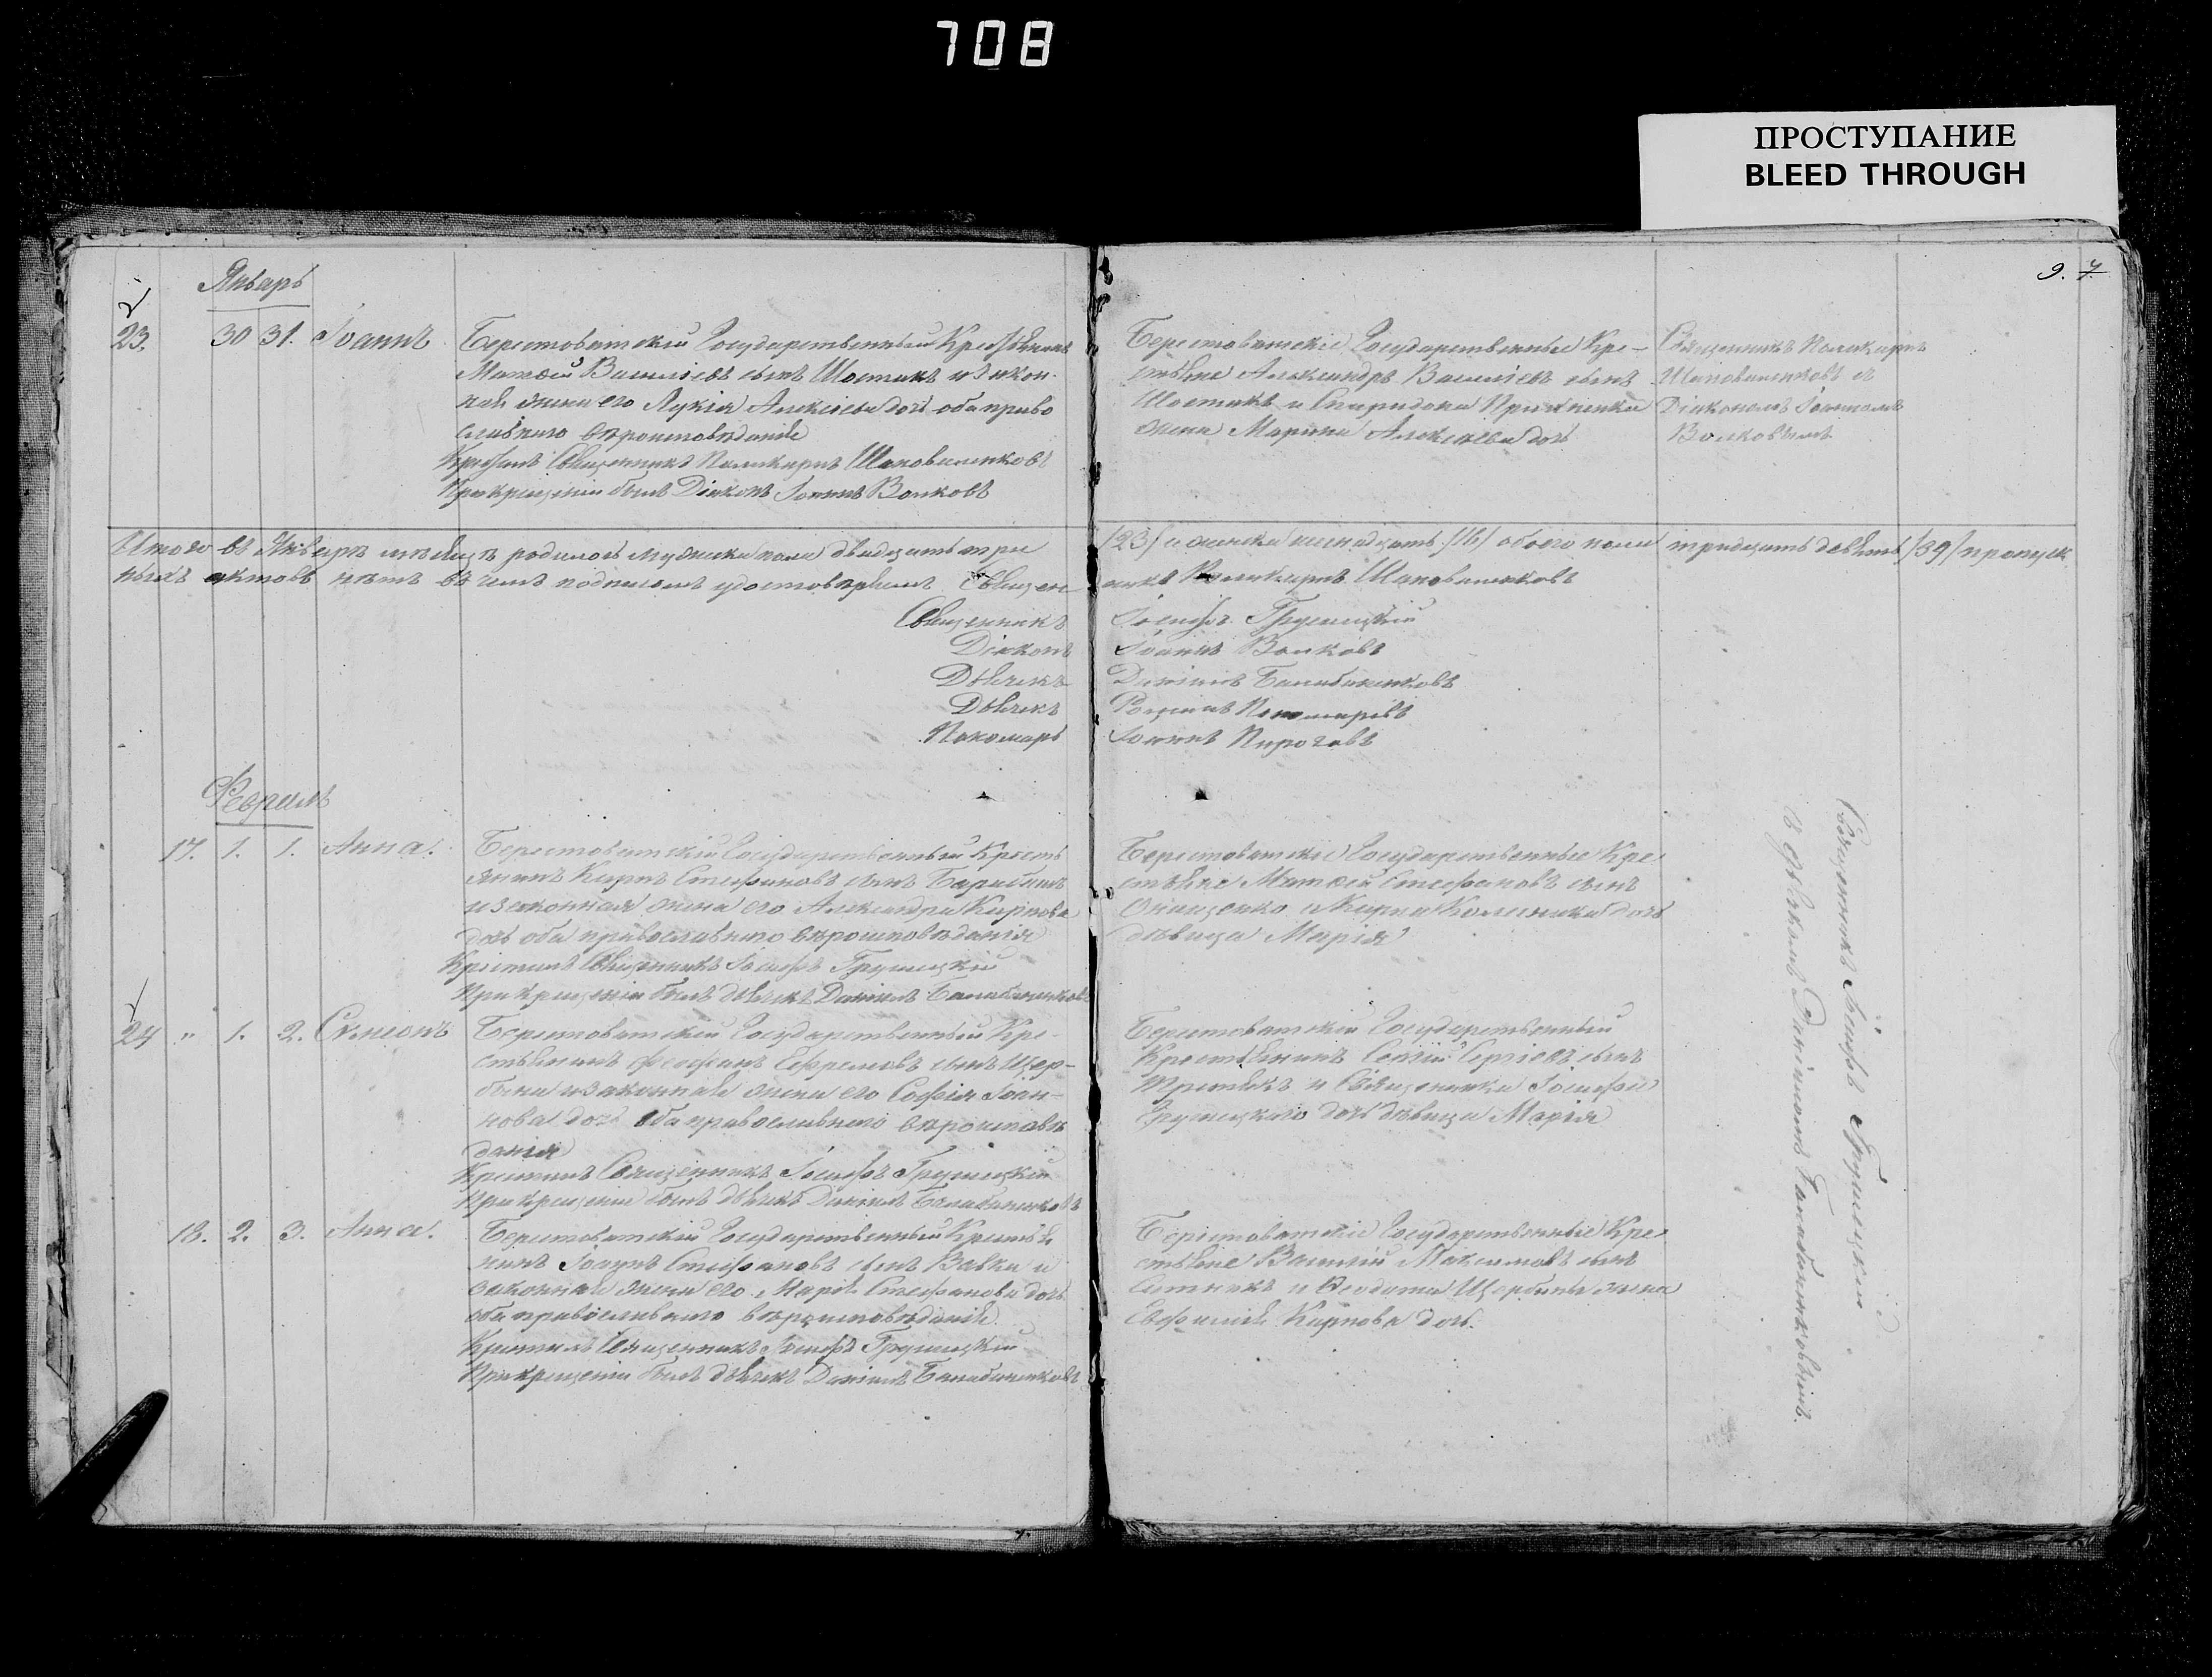 708
ПРОСТУПАНИЕ
BLEED THROUGH
9. 7.
Январь
23. 30 31. Іоаннъ
Берестоватскій Государственный Крестьянинъ
Матѳей Василіевъ сынъ Шостакъ и закон-
ная жена его Лукія Алексіева дочь оба право
славнаго вѣроисповѣданія
Крестилъ Священникъ Поликарпъ Шаповаленковъ
При крещеніи былъ Діаконъ Іоаннъ Волковъ
Берестоватскіе Государственные Кре-
стьяне Александръ Василіевъ сынъ
Шостакъ и Спиридона
жена Марина Алексіева дочь
Священникъ Поликарпъ
Шаповаленковъ с
Діакономъ Іоанномъ
Волковымъ
Итого въ Январѣ мѣсяцѣ родилось мужеска пола двадцать три /23/ и женска шестнадцать /16/ обоего пола тридцать девять /39/ пропуск
ныхъ актовъ нѣтъ въ чемъ подписомъ удостовѣряемъ Священ никъ Поликарпъ Шаповаленковъ
Священникъ Іосифъ Грушецкій
Діаконъ Іоаннъ Волковъ
Дьячекъ Даніилъ Балабаненковъ
Дьячекъ Пономаревъ
Пономарь Іоаннъ Пироговъ
Февраль
17. 1. 1. Анна.
Берестоватскій Государственный Кресть
янинъ Карпъ Стефановъ сынъ
и законная жена его Александра Карпова
дочь оба православнаго вѣроисповѣданія
Крестилъ Священникъ Іосифъ Грушецкій
При крещеніи былъ дьячекъ Даніилъ Балабаненковъ
Берестоватскіе Государственные Кре-
стьяне Матѳей Стефановъ сынъ
Онищенко и Карпа Колесника дочь
дѣвица Марія
24 " 1. 2. Сѵмеонъ
Берестоватскій Государственный Кре-
стьянинъ Ефремовъ сынъ Щер-
бина и законная жена его Софія Іоан-
нова дочь оба православнаго вѣроисповѣ
данія
Крестилъ Священникъ Іосифъ Грушецкій
При крещеніи былъ дьячекъ Даніилъ Балабаненковъ
Берестоватскій Государственный
Крестьянинъ Сергіевъ сынъ
Третьякъ и Священника Іосифа
Грушецкаго дочь дѣвица Марія
18. 2. 3. Анна.
Берестоватскій Государственный Крестья
нинъ Іоаннъ Стефановъ сынъ Вовка и
законная жена его Марѳа Стефанова дочь
оба православнаго вѣроисповѣданія.
Крестилъ Священникъ Іосифъ Грушецкій
При крещеніи былъ дьячекъ Даніилъ Балабаненковъ
Берестоватскіе Государственные Кре-
стьяне Василій Максимовъ сынъ
Сытникъ и Ѳеодота Щербины жена
Евфимія Карпова дочь.
Священникъ Іосифъ Грушецкій
съ дьячкомъ Даніиломъ Балабаненковымъ.